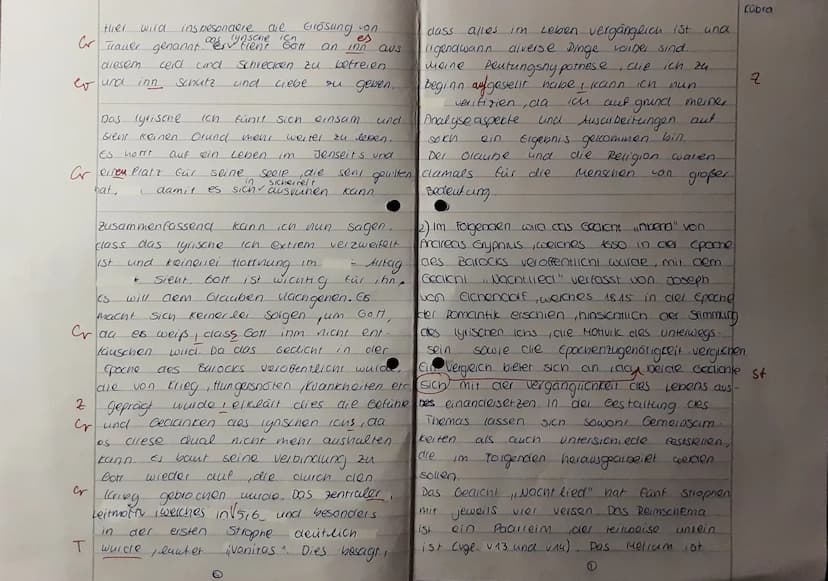 Hier wird insbesondere die Erlösung von
Gr Trauer genannt. das lyrische ich es
Er fleht Gott an inn aus
diesem Leid und Schrecken zu befreien
Gr und inn Schutz und Liebe zu geben.
Das lyrische Ich fühlt sich einsam und
sieht keinen Grund mehr weiter zu leben.
Es hofft auf ein Leben im Jenseits und
Gr einen Platz für seine Seele, die sehr gelitten
hat, damit es sich in Sicherheit ausruhen kann.
Zusammenfassend kann ich nun sagen,
dass das lyrische Ich extrem verzweifelt
ist und keinerlei Hoffnung im Alltag
sieht. Gott ist wichtig für ihn.
Es will dem Glauben nachgehen. Es
macht sich keinerlei Sorgen, um Gott,
Gr da es weiß, dass Gott ihm nicht ent-
täuschen wird. Da das Gedicht in der
Epoche des Barocks veröffentlicht wurde,
die von Krieg, Hungersnöten, Krankheiten er
Z geprägt wurde, erklärt dies die Gefühle
Gr und Gedanken des lyrischen Ichs, da
es diese Qual nicht mehr aushalten
kann. Es baut seine Verbindung zu
Gott wieder auf, die durch den
Gr Krieg gebrochen wurde. Das zentraler,
Leitmotiv, welches in V5,6 und besonders
in der ersten Strophe deutlich
T wurde, lautet "Vanitas". Dies besagt,
Kübra
dass alles im Leben vergänglich ist und
irgendwann diverse Dinge vorbei sind.
Meine Deutungshypothese, die ich zu
Beginn aufgestellt habe, kann ich nun Z
verifizieren, da ich auf grund meiner
Analyseaspekte und Ausarbeitungen auf
solch ein Ergebnis gekommen bin.
Der Glaube und die Religion waren
damals für die Menschen von großer
Bedeutung.
2) Im Folgenden wird das Gedicht "Abend" von
Andreas Gryphius, welches 1650 in der Epoche
des Barocks veröffentlicht wurde, mit dem
Gedicht "Nachtlied" verfasst von Joseph
von Eichendorf, welches 1815 in der Epoche
der Romantik erschien, hinsichtlich der Stimmung
des lyrischen Ichs, die Motivik des Unterwegs-
sein sowie die Epochenzugehörigkeit verglichen.
Ein Vergleich bietet sich an, da beide Gedichte St
sich mit der Vergänglichkeit des Lebens aus-
einandersetzen. In der Gestaltung des
Themas lassen sich sowohl Gemeinsam-
keiten als auch Unterschiede feststellen,
die im Folgenden herausgearbeitet werden
sollen.
Das Gedicht "Nachtlied" hat fünf Strophen
mit jeweils vier Versen. Das Reimschema
ist ein Paarreim der teilweise unrein
ist (vgl. V13 und V14). Das Metrum ist